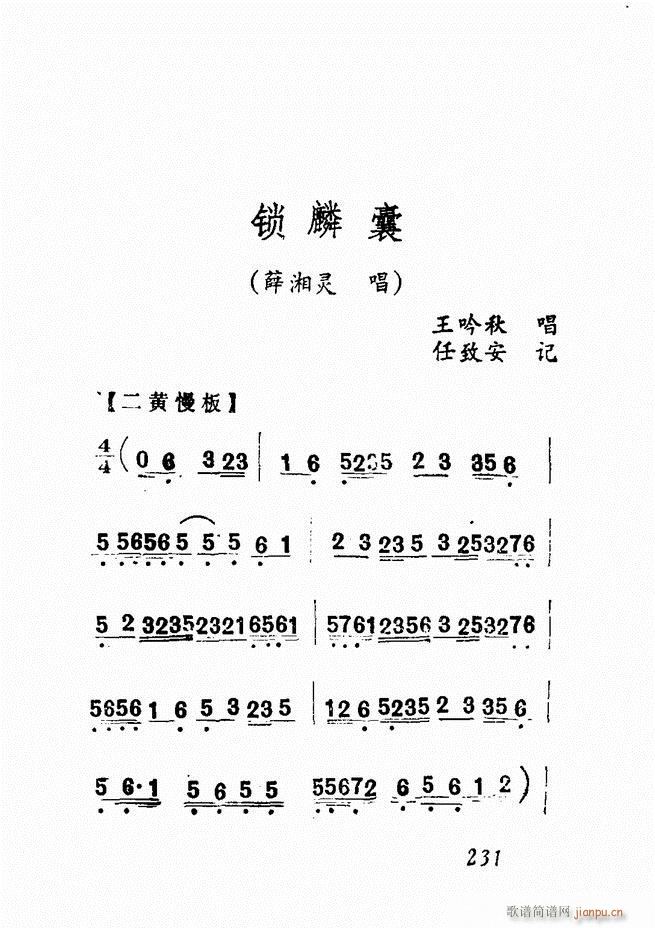 锁麟囊
(薛湘灵 唱)
王吟秋 唱
任致安 记
【二黄慢板】
4/4 (0 6 3 23 | 1 6 5235 2 3 35 6 |
5 5656 5 5 5 6 1 | 2 3 235 3 253276 |
5 2 3235 2321 6561 | 5761 2356 3 253276 |
5656 1 6 5 3 235 | 126 5235 2 3 35 6 |
5 6·1 5 6 5 5 55672 6 5 6 1 2) |
231
歌谱简谱网 jianpu.cn